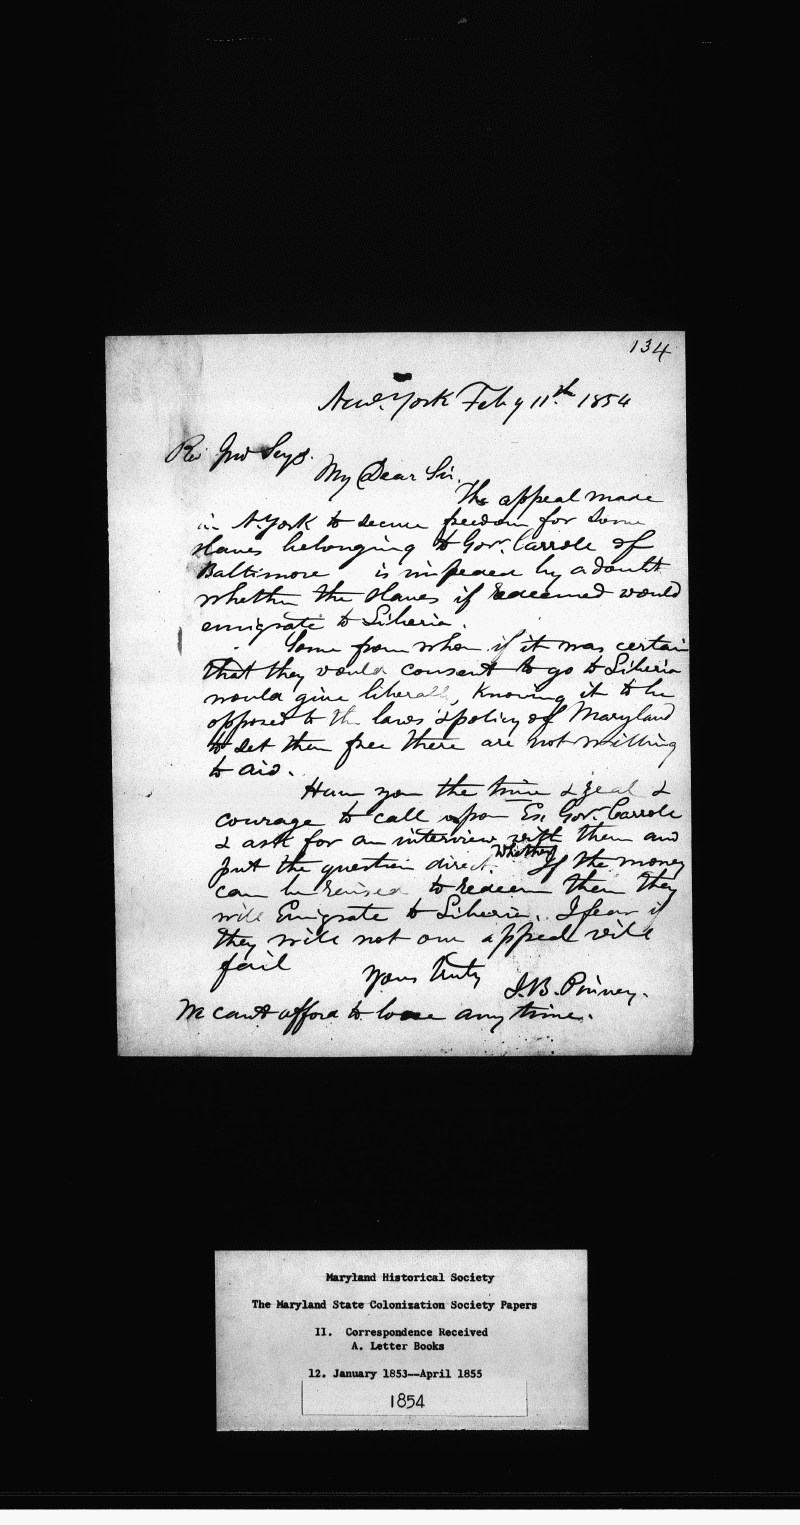 134
New York Feby 11th 1854
Rev Jno Seys.
My Dear Sir.
The appeal made
in N. York to secure freedom for some
slaves belonging to Gov. Carrole of
Baltimore is impeded by a doubt
whether the slaves if redeemed would
emigrate to Liberia.
Some from whom if it was certain
that they would consent to go to Liberia
would give liberally, knowing it to be
opposed to the laws & policy of Maryland
to set them free there are not willing
to aid.
Have you the time & zeal &
courage to call upon Ex. Gov. Carrole
& ask for an interview with them and
put the question direct. Whether If the money
can be raised to redeem them they
will Emigrate to Liberia. I fear if
they will not our appeal will
fail
Yours truly
J. B. Pinney.
We cant afford to loose any time.
Maryland Historical Society
The Maryland State Colonization Society Papers
II. Correspondence Received
A. Letter Books
12. January 1853--April 1855
1854